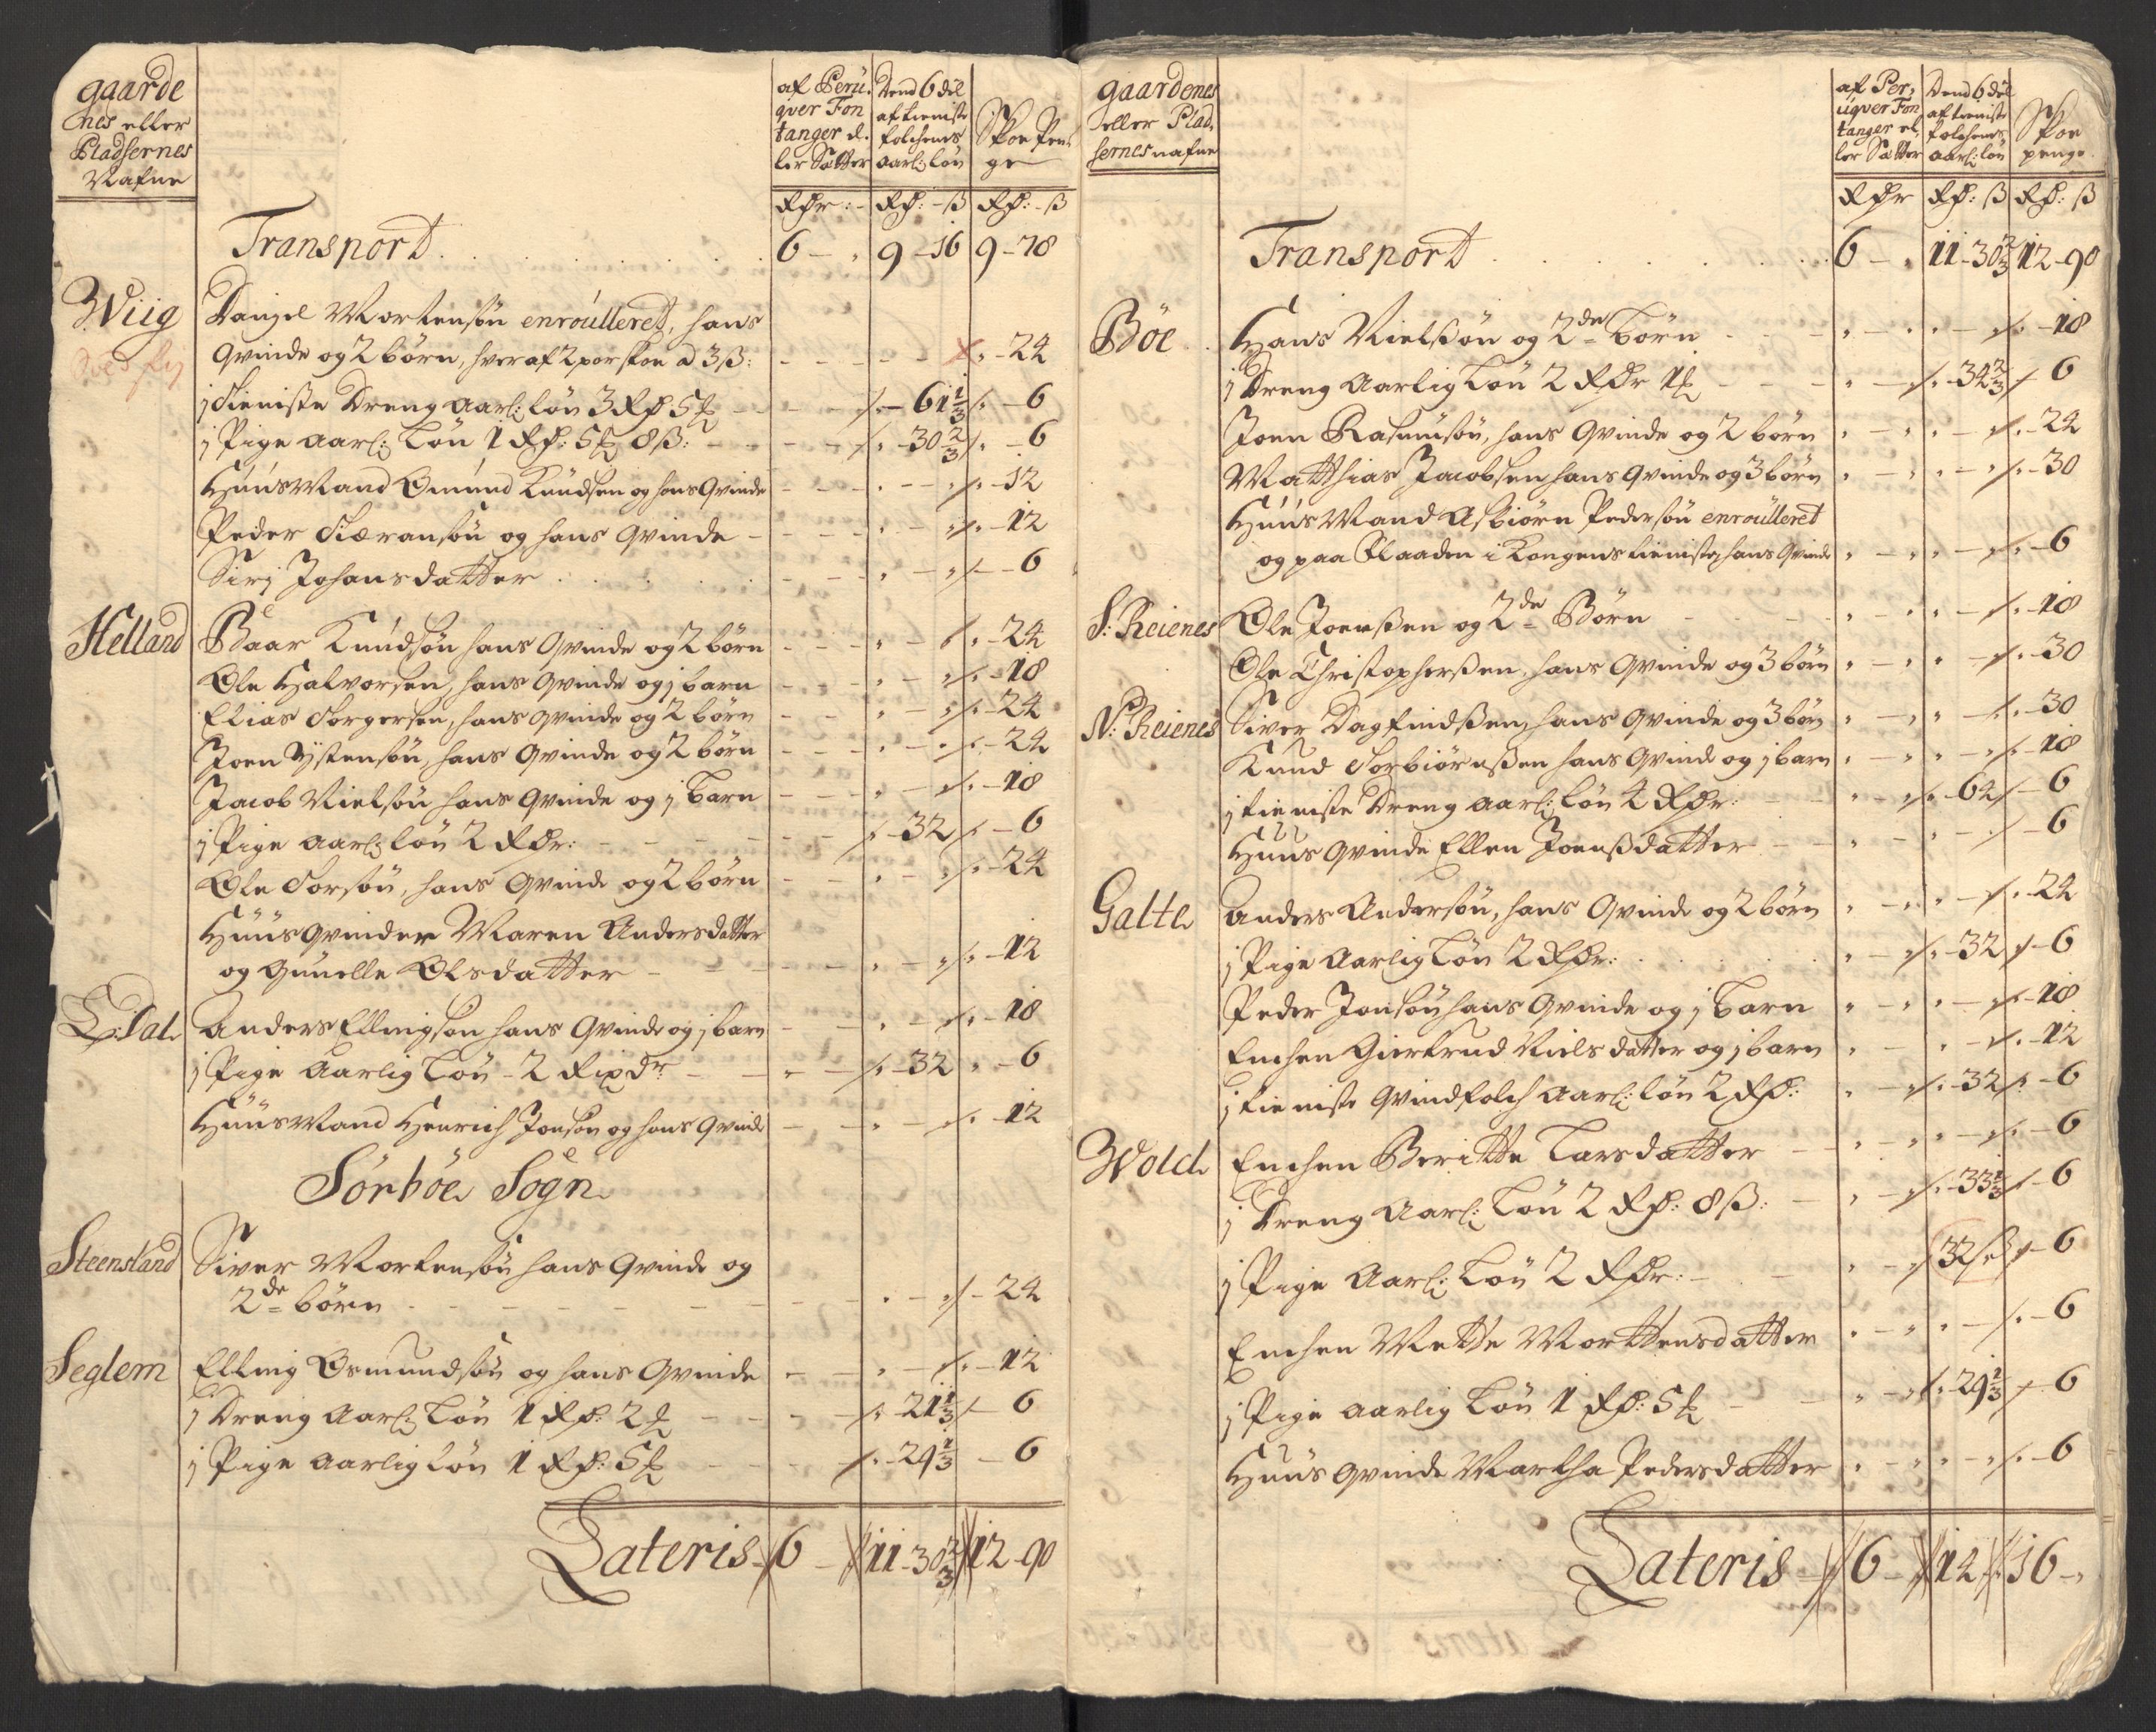 gaarde
nes eller
Pladsernes
Nafne
af Peru.
qver Fon
tanger el.
ler Sætter
Dend 6 deel
af tieniste
folchenes
aarl: løn
Skoe Pen
ge
Rdr: - Rd: - ß Rd: - ß
Transport . . . . . . . 6 - „ 9 - 16 9 - 78
Wiig Daniel Mortensøn enroulleret, hans
Qvinde og 2 børn, hver af 2 par skoe a 3 ß: - - - „ - 24
j Tieniste Dreng aarl: løn 3 Rd 5 - - - 61 1/3 „ - 6
j Pige aarl: Løn 1 Rd: 5 8 ß: - - - „ - 30 2/3 „ - 6
Huus Mand Omund Knudsen og hans Qvinde - - - „ - 12
Peder Siøransøn og hans Qvinde - - - „ - 12
Sirj Johansdatter . . . - - - „ - 6
Helland Baar Knudsøn hans Qvinde og 2 børn - - - „ - 24
Ole Halvorsen, hans Qvinde og j barn - - - „ - 18
Elias Torgersen, hans Qvinde og 2 børn - - - „ - 24
Joen Ÿstensøn, hans Qvinde og 2 børn - - - „ - 24
Jacob Nielsøn hans Qvinde og j Barn - - - „ - 18
j Pige Aarl: løn 2 Rdr: - - - „ - 32 „ - 6
Ole Torsøn, hans Qvinde og 2 børn - - - „ - 24
Huus Qvinder Maren Andersdatter
og Gunelle Olsdatter - - - „ - 12
Dal Anders Ellingsøn hans Qvinde og j barn - - - „ - 18
j Pige Aarlig Løn - 2 Rixdr - - „ - 32 „ - 6
Huus Mand Henrich Jonsøn og hans Qvinde - - - „ - 12
Sørbøe Sogn
Steensland Siver Mortensøn hans Qvinde og
2de børn - - - „ - 24
Seglem Elling Osmundsøn og hans Qvinde - - - „ - 12
j Dreng Aarl: Løn 1 Rd: 2 - - - „ 21 1/3 - 6
j Pige Aarlig Løn 1 Rd: 5 - - - „ - 29 1/3 - 6
Lateris 6 - 11 - 30 2/3 12 - 90
gaardenes
eller Plad,
sernes nafne
af Per,
uqver Fon
tanger el,
ler Sætter
Dend 6 deel
af tieniste
folchenes
aarl: løn
Skoe
penge
Rdr Rd: ß Rd: ß
Transport . . . . . . 6 - „ 11 - 30 2/3 12 - 90
Böe Hans Nielsøn og 2de Børn - - - „ - 18
j Dreng Aarlig Løn 2 Rdr 1 - - - „ - 34 2/3 - 6
Joen Rasmusøn, hans Qvinde og 2 børn „ - „ „ - „ - 24
Matthias Jacobsen hans Qvinde og 3 børn „ - „ „ - „ - 30
Huus Mand Asbiørn Pedersøn enroulleret
og paa Flaaden i Kongens tieniste, hans Qvinde „ - „ „ - „ - 6
S: Reienes Ole Joenßen og 2de Børn - - - „ - 18
Ole Christopherßen, hans Qvinde og 3 børn „ - „ „ - „ - 30
N: Reienes Siver Dagfindßen, hans Qvinde og 3 børn „ - „ „ - „ - 30
Knud Torbiørnßen hans Qvinde og j barn „ - „ „ - „ - 18
j tieniste Dreng aarl: løn 4 Rdr: - - „ - 64 - 6
Huus Qvinde Ellen Joenßdatter - - „ - 6
Galte Anders Andersøn, hans Qvinde og 2 børn „ - „ „ - „ - 24
j Pige Aarlig Løn 2 Rdr: . . . „ - „ - 32 - 6
Peder Jonsøn hans Qvinde og j Barn „ - „ „ - „ - 18
Enchen Giertrud Nielsdatter og j barn „ - „ „ - „ - 12
j tieniste Qvindfolch Aarl: løn 2 Rd: „ - „ - 32 „ - 6
Wold Enchen Beritte Larsdatter - - „ - „ - 6
j Dreng Aarl: Løn 2 Rd: 8 ß: - - „ - 33 1/3 - 6
j Pige Aarl: Løn 2 Rdr: - - „ - 32 ß - 6
Enchen Mette Morttensdatter „ - „ „ - „ - 6
j Pige Aarlig Løn 1 Rd: 5 - - „ - 29 1/3 - 6
Huus Qvinde Martha Pedersdatter „ - „ „ - „ - 6
Lateris 6 - 14 - „ 16 - „